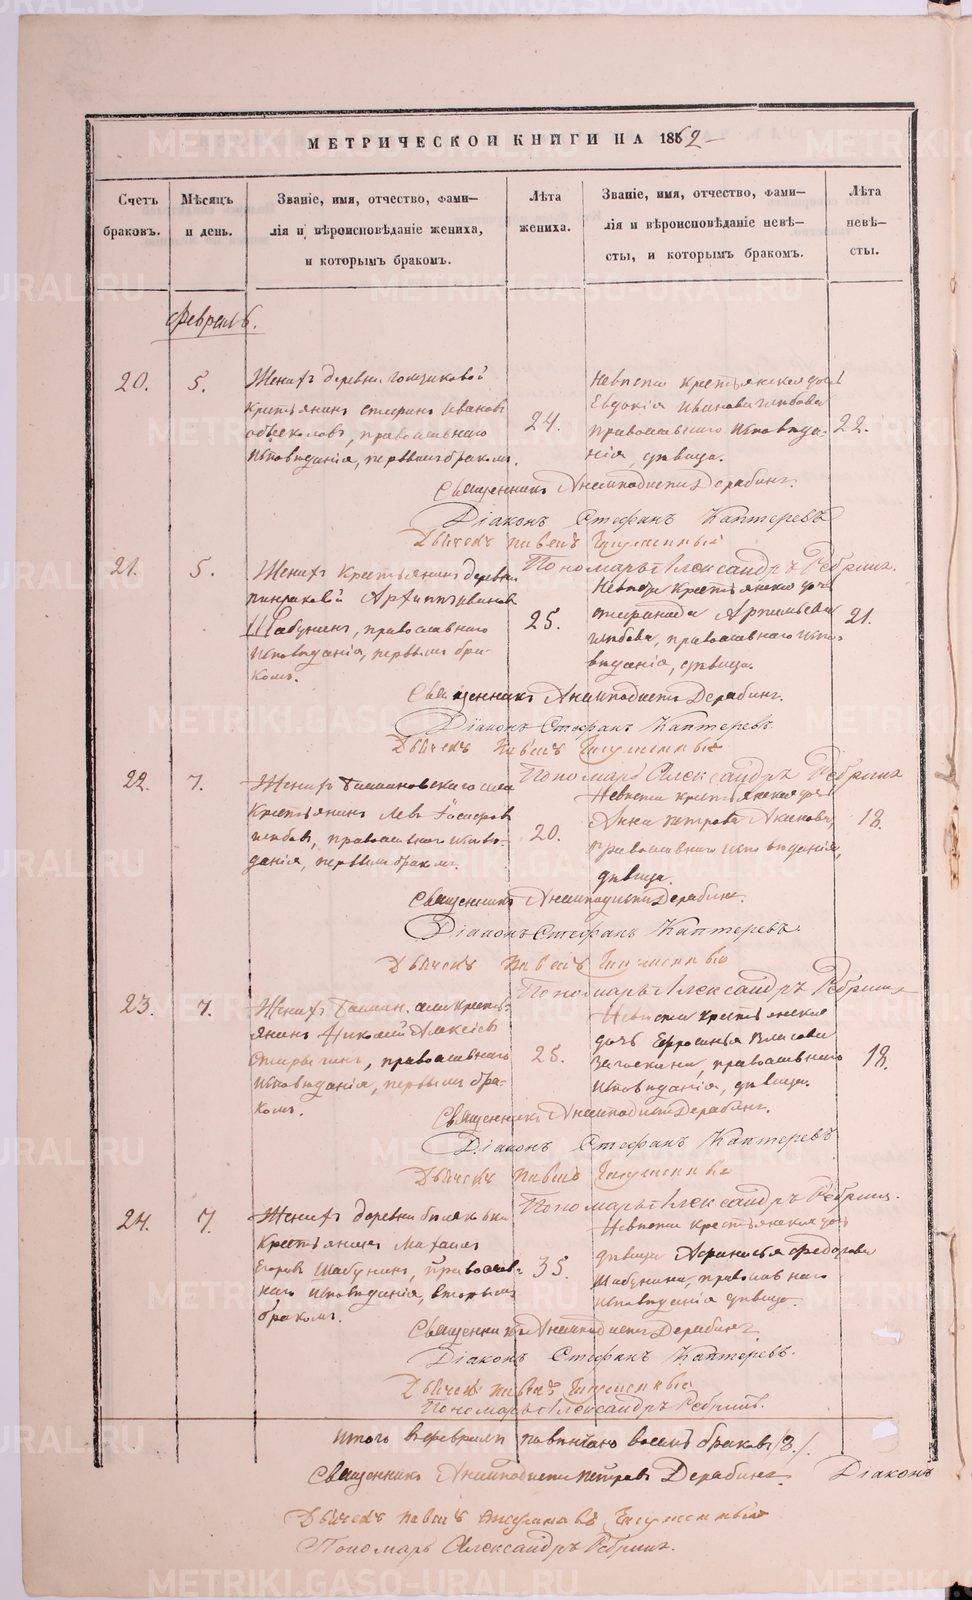 МЕТРИЧЕСКОЙ КНИГИ НА 1862
Счетъ браковъ.
Мѣсяцъ и день.
Званіе, имя, отчество, фами-
лія и вѣроисповѣданіе жениха,
и которымъ бракомъ.
Лѣта жениха.
Званіе, имя, отчество, фами-
лія и вѣроисповѣданіе невѣ-
сты, и которымъ бракомъ.
Лѣта невѣ-
сты.
Февраль.
20.
5.
Женихъ деревни
крестьянинъ Ивановъ
православнаго
исповѣданія, первымъ бракомъ.
24.
Невѣста крестьянская дочь
Евдокія Иванова Глѣбова
православнаго исповѣда-
нія, дѣвица.
22.
Священникъ Анемподистъ Дерябинъ.
Діаконъ Стефанъ Каптеревъ
Дьячекъ Павелъ
Пономарь Александръ Ребринъ.
21.
5.
Женихъ крестьянинъ деревни
Архиппъ Ивановъ
Шабунинъ, православнаго
исповѣданія, первымъ бра-
комъ.
25.
Невѣста крестьянская дочь
Глѣбова, православнаго испо-
вѣданія, дѣвица.
21.
Священникъ Анемподистъ Дерябинъ.
Діаконъ Стефанъ Каптеревъ
Дьячекъ Павелъ
Пономарь Александръ Ребринъ
22.
7.
Женихъ села
крестьянинъ Левъ
Глѣбовъ, православнаго исповѣ-
данія, первымъ бракомъ.
20.
Невѣста крестьянская дочь
Анна Петрова
православнаго исповѣданія,
дѣвица.
18.
Священникъ Анемподистъ Дерябинъ.
Діаконъ Стефанъ Каптеревъ.
Дьячекъ Павелъ
Пономарь Александръ Ребринъ
23.
7.
Женихъ села кресть-
янинъ Николай Алексѣевъ
православнаго
исповѣданія, первымъ бра-
комъ.
25.
Невѣста крестьянская
дочь Ефросинья Власова
православнаго
исповѣданія, дѣвица.
18.
Священникъ Анемподистъ Дерябинъ.
Діаконъ Стефанъ Каптеревъ
Дьячекъ Павелъ
Пономарь Александръ Ребринъ.
24.
7.
Женихъ деревни
крестьянинъ Михаилъ
Егоровъ Шабунинъ, православ-
наго исповѣданія, вторымъ
бракомъ.
35.
Невѣста крестьянская дочь
дѣвица Афанасья Федорова
Шабунина, православнаго
исповѣданія дѣвица.
Священникъ Анемподистъ Дерябинъ
Діаконъ Стефанъ Каптеревъ.
Дьячекъ Павелъ
Пономарь Александръ Ребринъ.
Итого въ февралѣ повѣнчано восемь браковъ /8/.
Священникъ Анемподистъ Петровъ Дерябинъ Діаконъ
Дьячекъ Павелъ
Пономарь Александръ Ребринъ.
METRIKI.GASO-URAL.RU